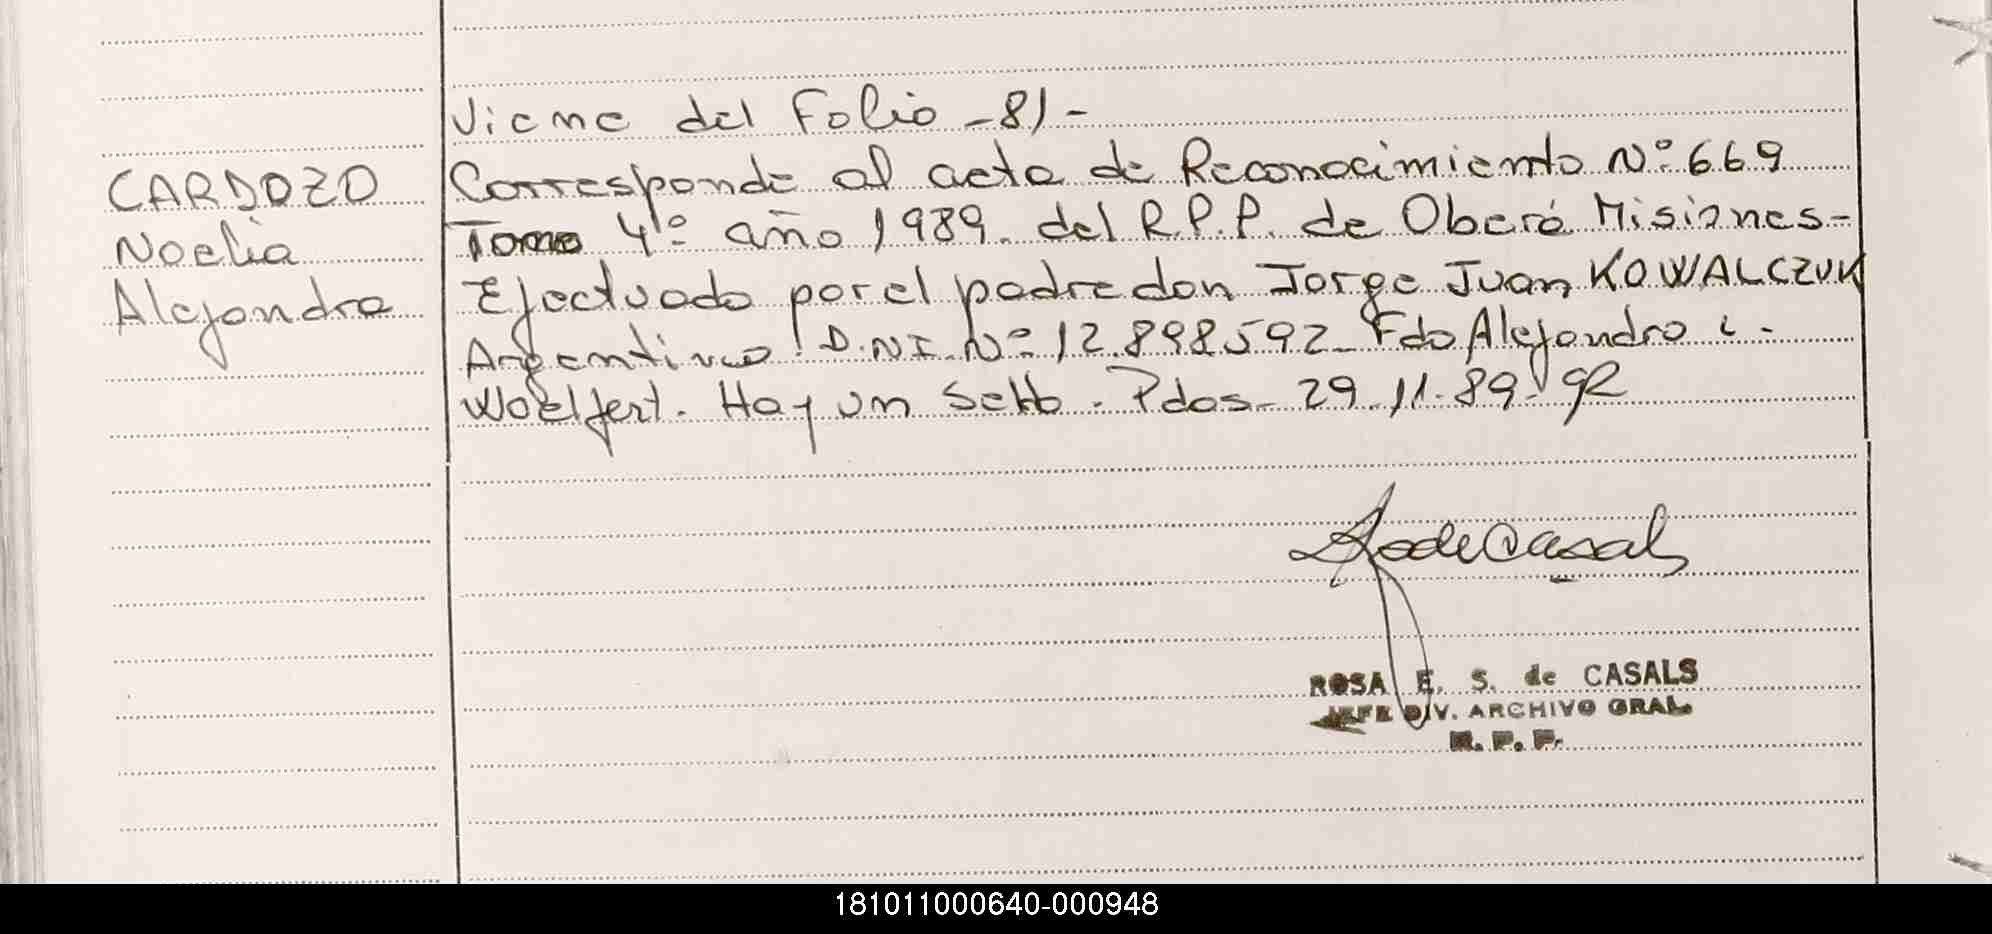 Viene del Folio -81-
CARDOZO
Noelia
Alejandra
Corresponde al acta de Reconocimiento Nº 669
Tomo 4º año 1989. del R.P.P. de Oberá Misiones-
Efectuado por el padre don Jorge Juan KOWALCZUK
Argentino D.N.I. Nº 12.898592- Fdo Alejandro L-
Woelfert. Hay un Sello. Pdas- 29-11-89-
de Casals
ROSA E. S. de CASALS
JEFE DIV. ARCHIVO GRAL.
R. P. P.
181011000640-000948